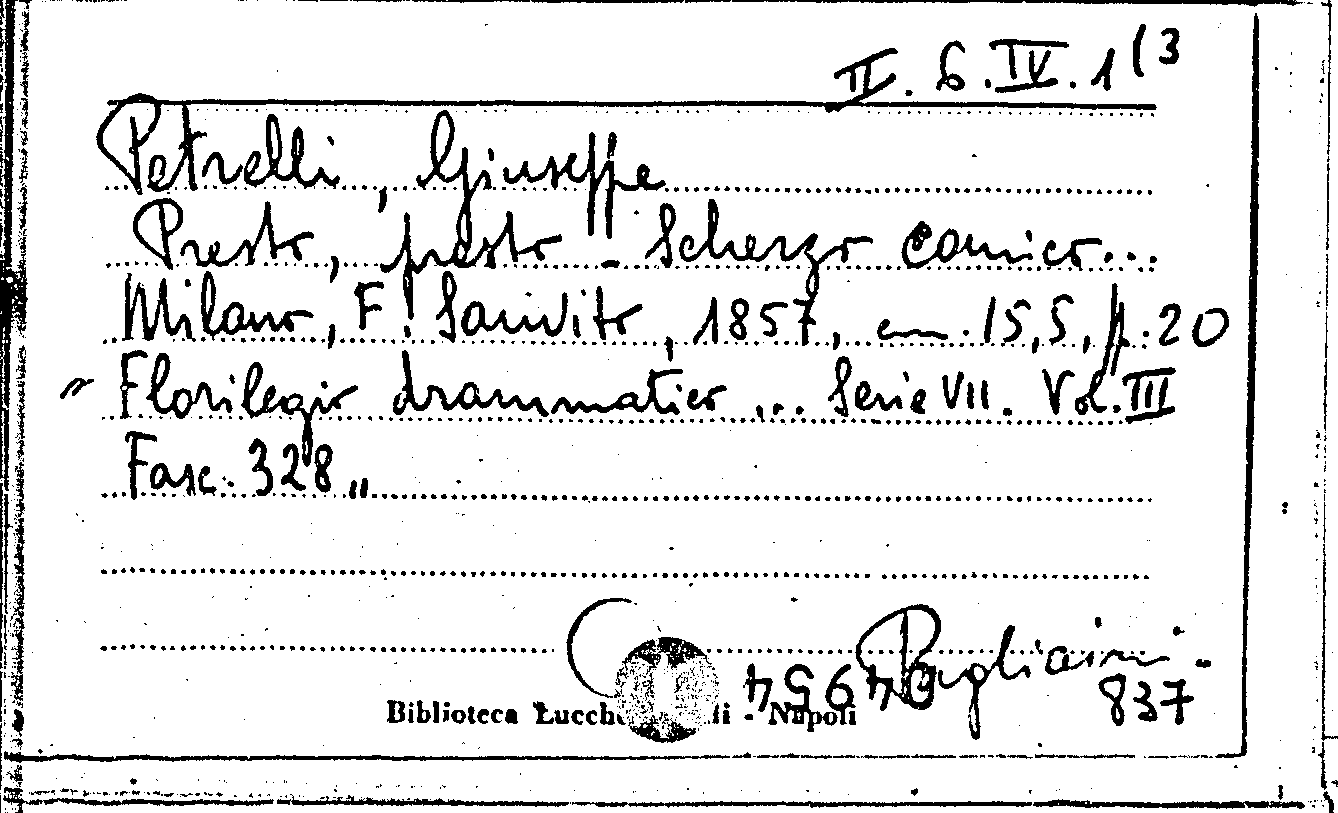 II. 6. IV. 1 (3
Petrelli, Giuseppe
Presto, presto - Scherzo comico...
Milano, F. Sanvito, 1857, cm. 15,5, p. 20
"Florilegio drammatico ... Serie VII. Vol. III
Fasc. 328"
Pagliaini -
837
04954
Biblioteca Lucchesi Palli - Napoli